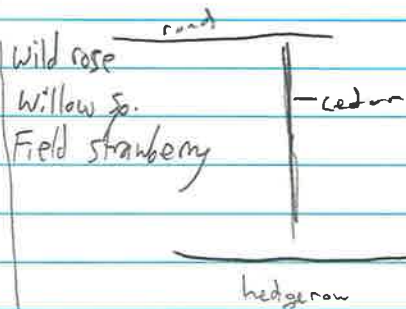 road
Wild rose
Willow sp.
Field strawberry
cedar
hedgerow